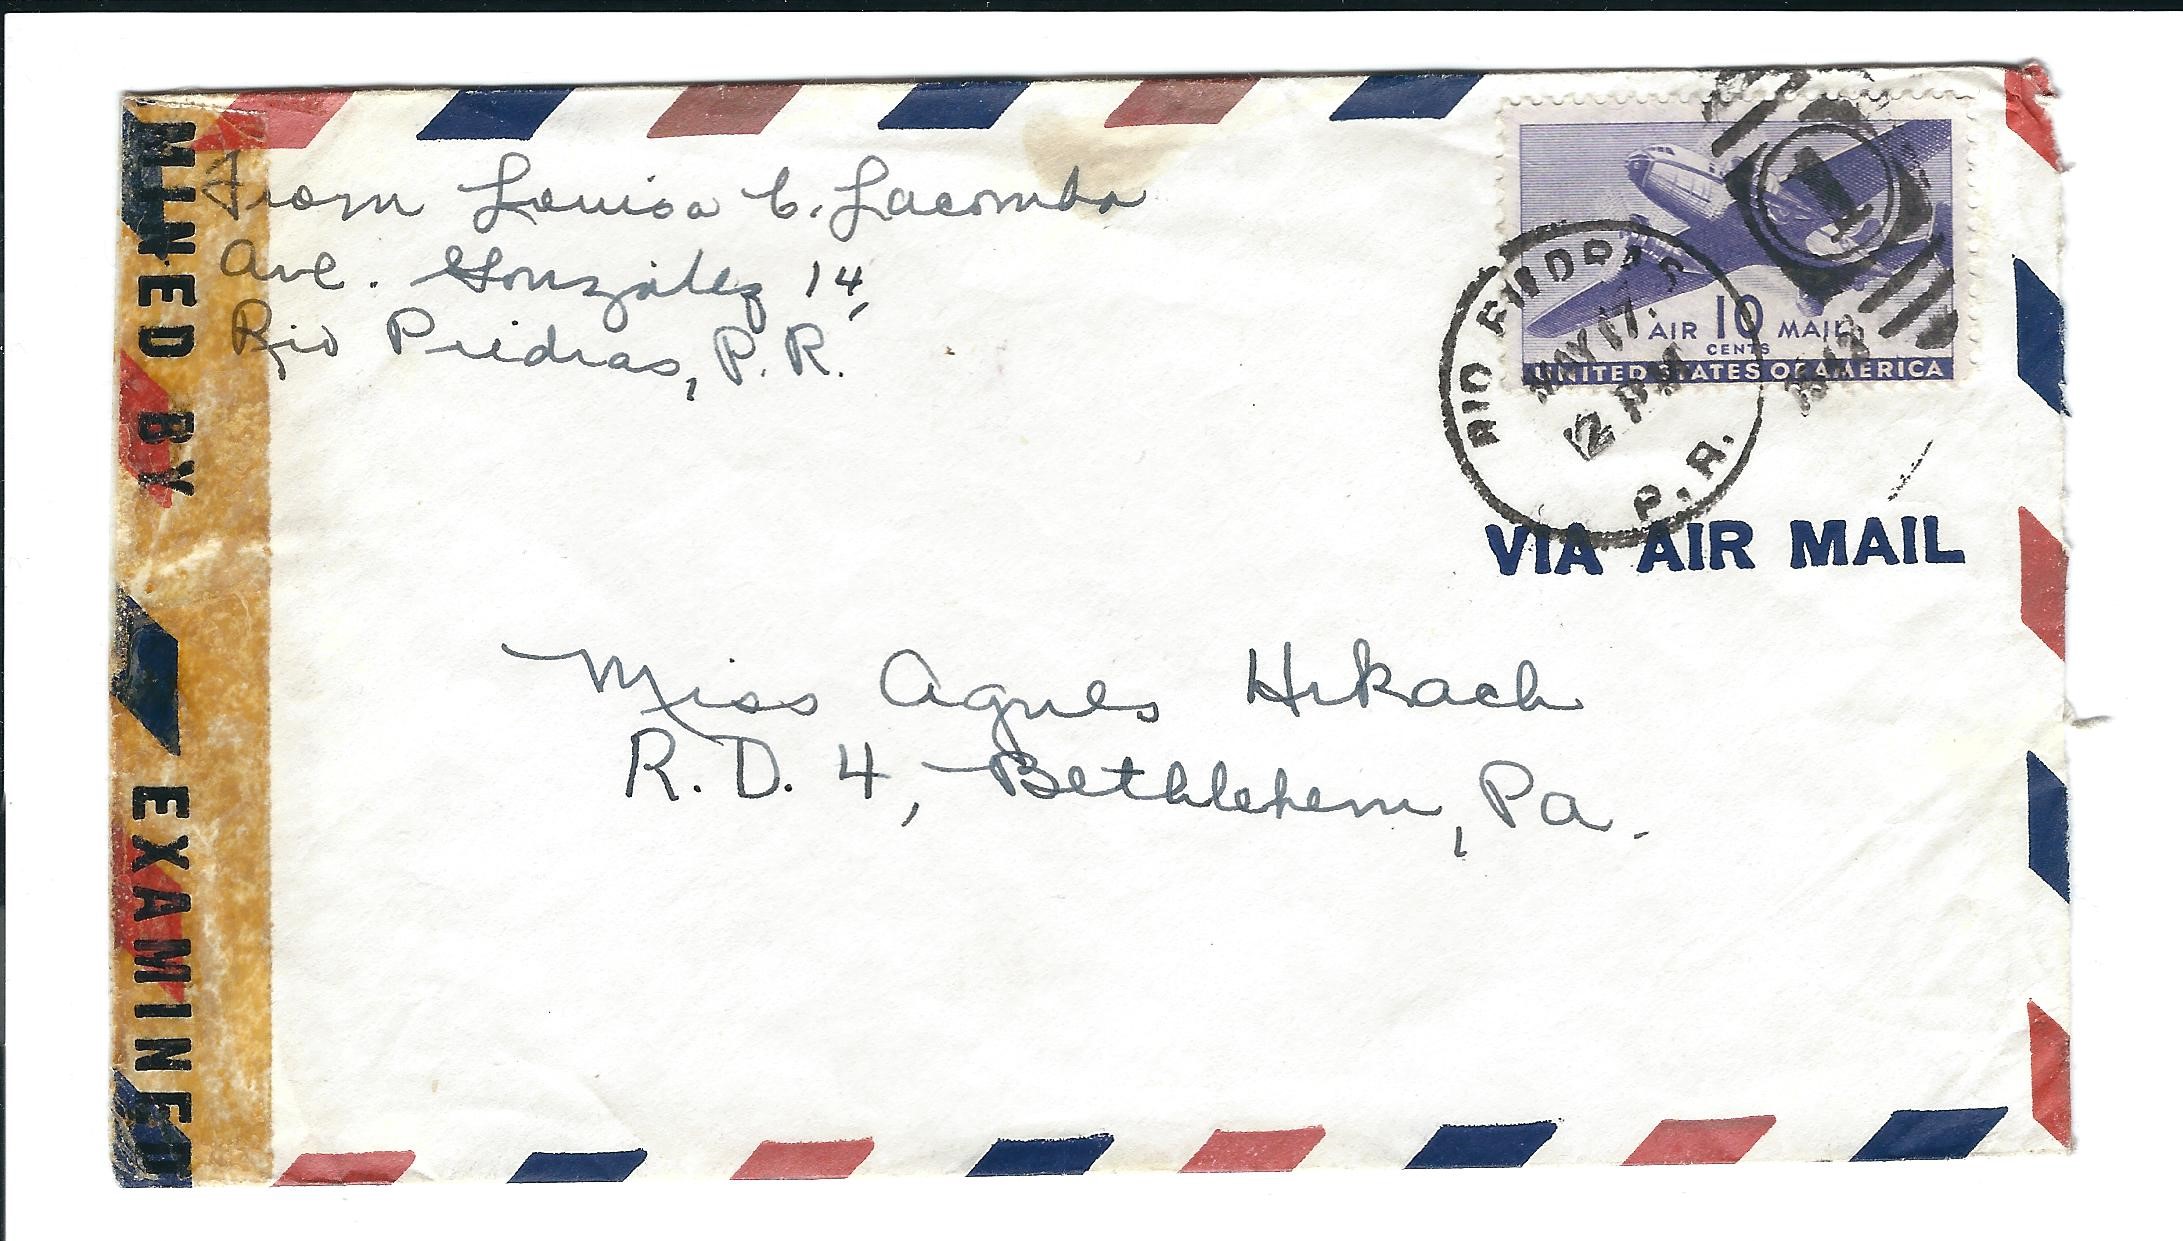 From Louisa C. Lacomba
Ave. González 14,
Rio Piedras, P. R.
AIR 10 MAIL
CENTS
UNITED STATES OF AMERICA
RIO PIEDRAS
MAY 17
12 PM
P.R.
1
VIA AIR MAIL
Miss Agnes Hrkach
R. D. 4, Bethlehem, Pa.
MINED BY
EXAMINED